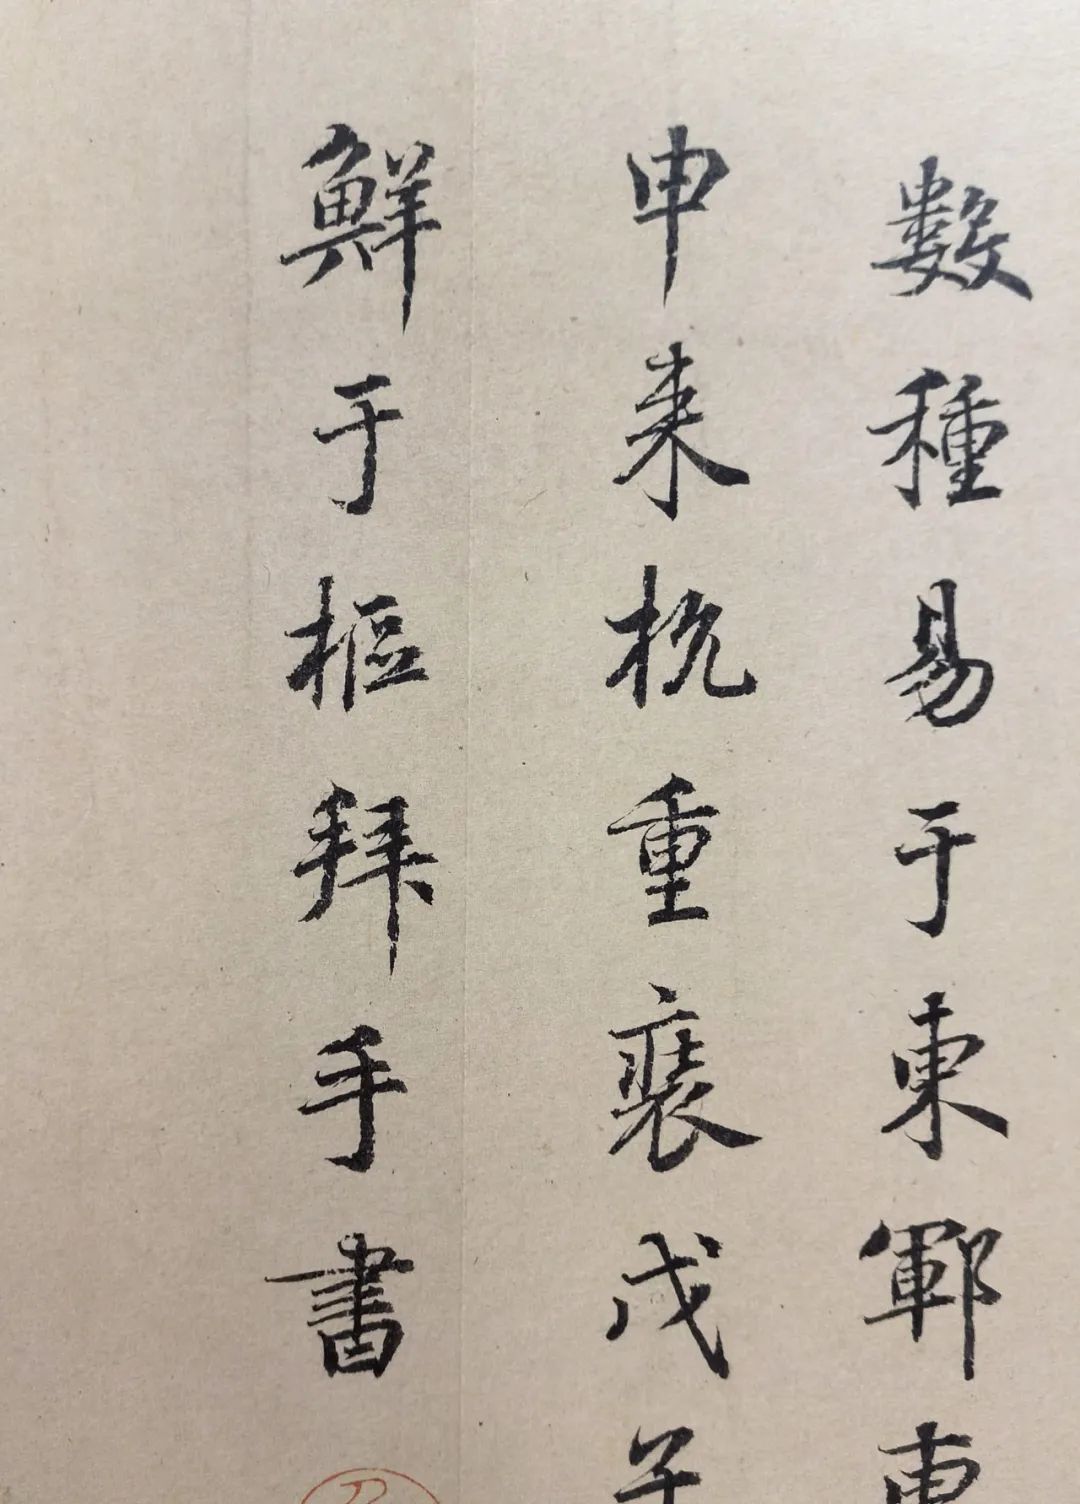 數種易于東鄆東
申来杭重裝戊子
鮮于樞拜手書